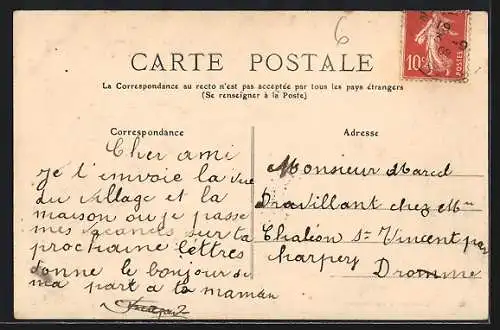 6
CARTE POSTALE
La Correspondance au recto n'est pas acceptée par tous les pays étrangers
(Se renseigner à la Poste)
Correspondance
Adresse
10c
POSTES
Cher ami
Je t'envoie la vue
du village et la
maison ou je passe
mes vacances sur ta
prochaine lettres
donne le bonjour de
ma part a ta maman
Monsieur Marcel
Dravillant chez Mme
Chaléon St Vincent par
Charpey Dromme